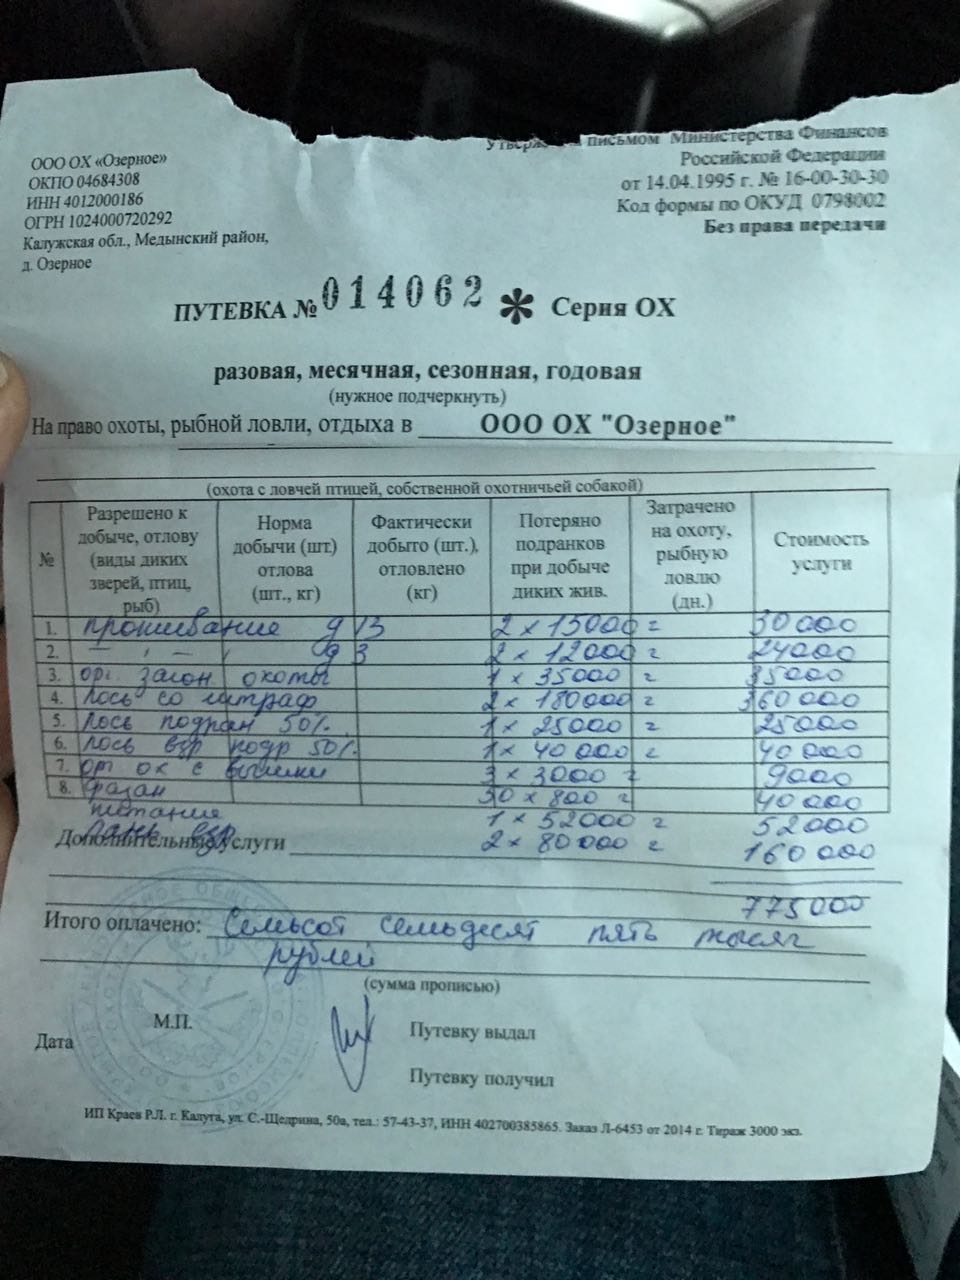 ООО ОХ «Озерное»
ОКПО 04684308
ИНН 4012000186
ОГРН 1024000720292
Калужская обл., Медынский район,
д. Озерное
письмом Министерства Финансов
Российской Федерации
от 14.04.1995 г. № 16-00-30-30
Код формы по ОКУД 0798002
Без права передачи
ПУТЕВКА № 014062 * Серия ОХ
разовая, месячная, сезонная, годовая
(нужное подчеркнуть)
На право охоты, рыбной ловли, отдыха в ООО ОХ "Озерное"
(охота с ловчей птицей, собственной охотничьей собакой)
№
Разрешено к
добыче, отлову
(виды диких
зверей, птиц,
рыб)
Норма
добычи (шт.)
отлова
(шт., кг)
Фактически
добыто (шт.),
отловлено
(кг)
Потеряно
подранков
при добыче
диких жив.
Затрачено
на охоту,
рыбную
ловлю
(дн.)
Стоимость
услуги
1. проживание д 13 2 х 15000 = 30 000
2. — " — д 3 2 х 12000 = 24000
3. орг. загон охоты 1 х 35000 = 35000
4. лось со штраф 2 х 180000 = 360 000
5. лось подран 50% 1 х 25000 = 25000
6. лось взр подр 50% 1 х 40 000 = 40 000
7. ох с вышки 3 х 3000 = 9000
8. фазан 50 х 800 = 40 000
питание 1 х 52000 = 52000
взр 2 х 80 000 = 160 000
Дополнительные услуги
775000
Итого оплачено: Семьсот семьдесят пять тысяч
рублей
(сумма прописью)
М.П.
Дата
Путевку выдал
Путевку получил
ИП Краев Р.Л. г. Калуга, ул. С.-Щедрина, 50а, тел.: 57-43-37, ИНН 402700385865. Заказ Л-6453 от 2014 г. Тираж 3000 экз.